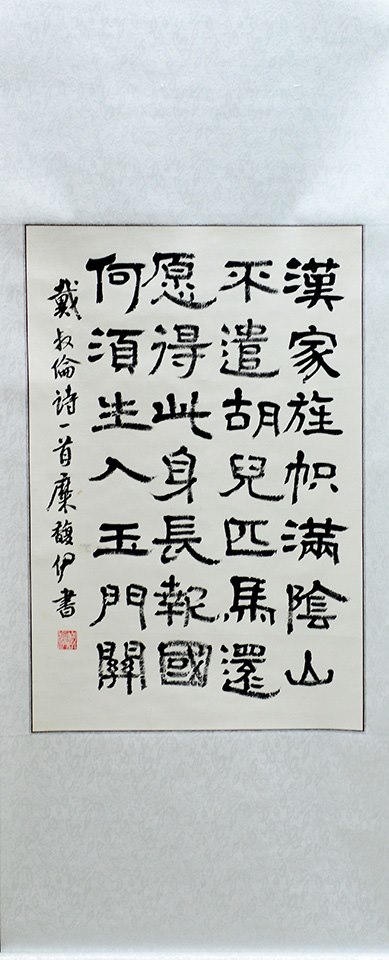 漢家旌帜滿陰山
不遣胡兒匹馬還
愿得此身長報國
何須生入玉門關
戴叔倫诗一首糜馥伊書